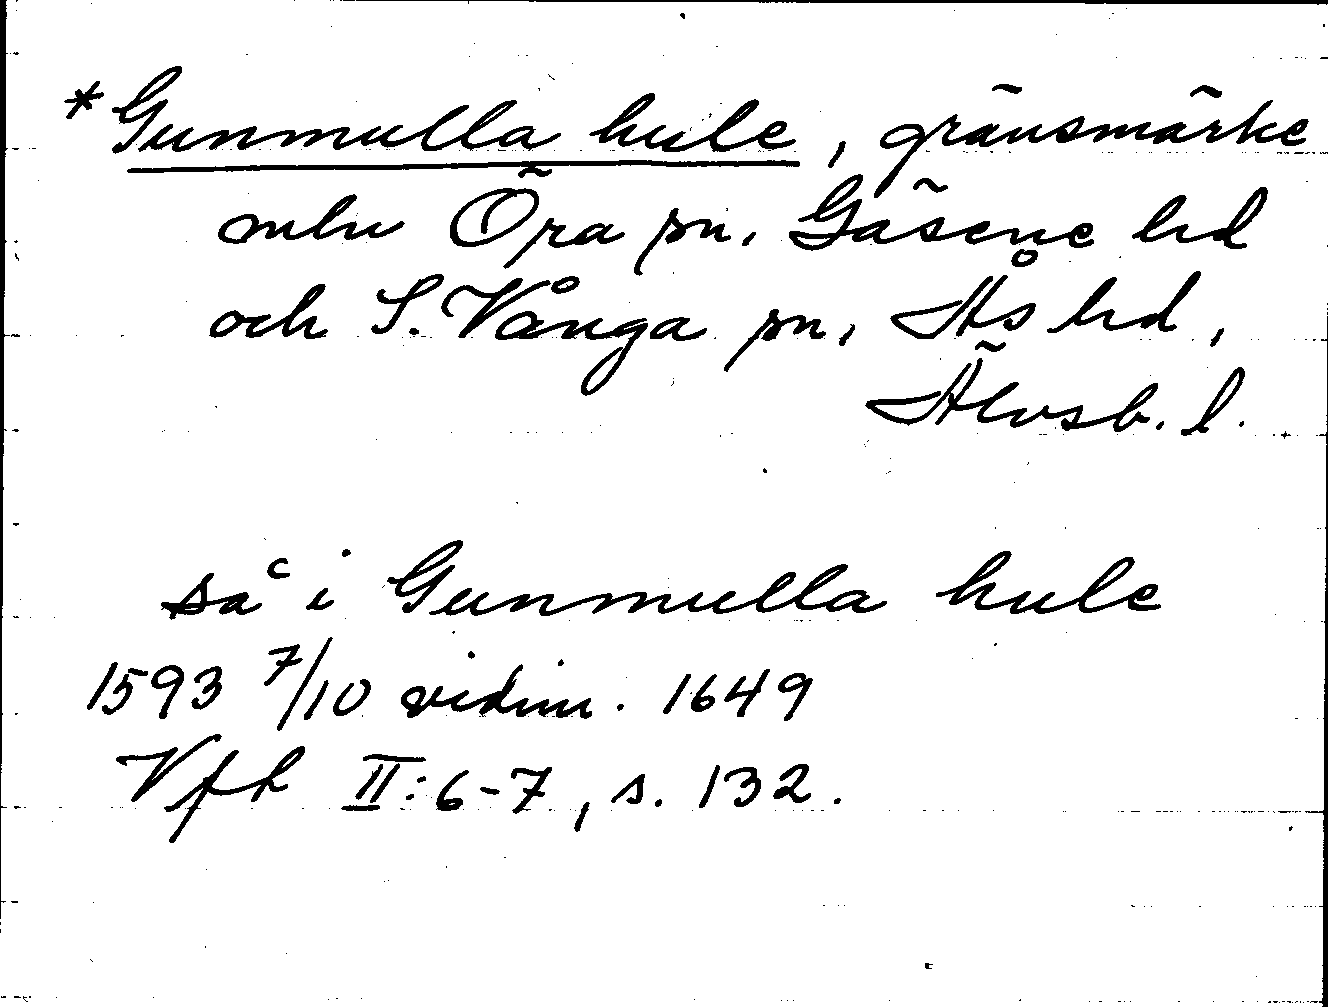 *Gunmulla hule, gränsmärke
mln Öra sn, Gäsene hd
och S. Vånga sn, Ås hd,
Älvsb. l.
så i Gunmulla hule
1593 7/10 vidim. 1649
Vfh II:6-7, s. 132.